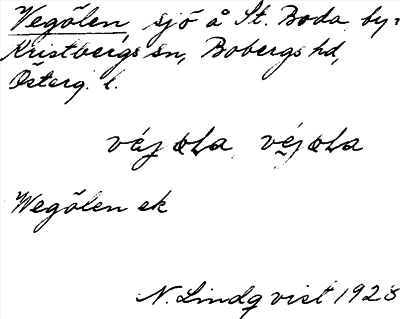 Vegölen, sjö å St. Boda by,
Kristbergs sn, Bobergs hd,
Österg. l.
Wegölen ek
N. Lindqvist 1928